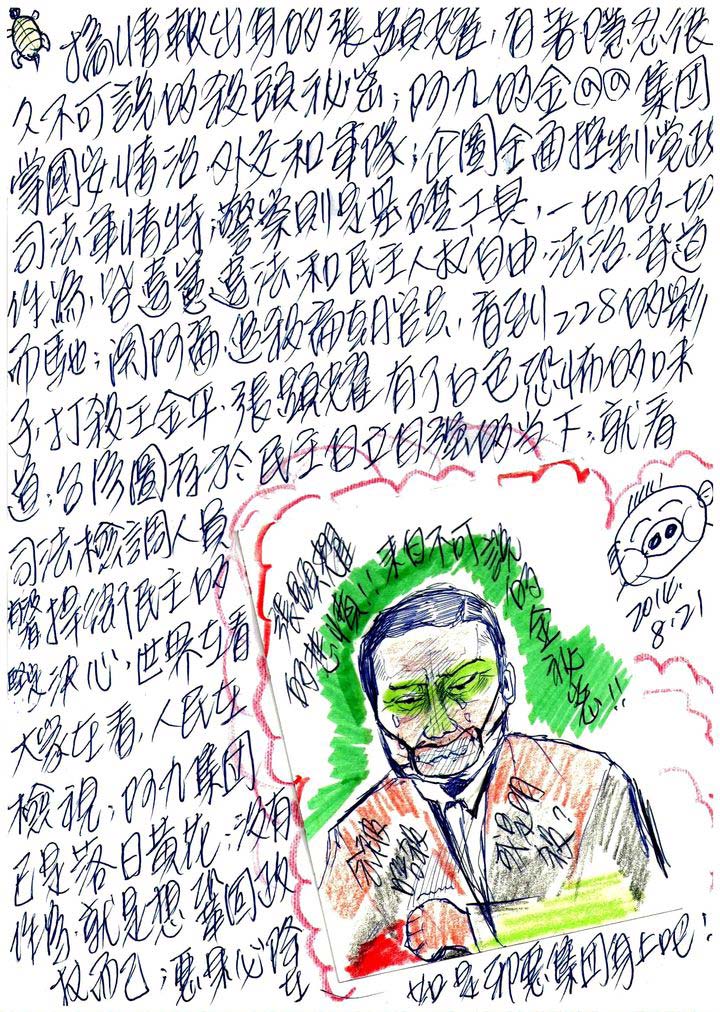 搞情報出身的張顯耀,有著隱忍很
久不可說的殺頭秘密;阿九的金@@集团
掌國安情治.外交和軍隊;企圖全面控制党政
司法軍情特,警察則是基礎工具,一切的一切
作為,皆違憲違法.和民主人权自由.法治.背道
而馳;関阿扁.追殺扁朝官員,看到228的影
子,打殺王金平.張顯耀有了白色恐怖的味
道;台湾圖存於民主自立自強的当下,就看
司法檢調人員
捍衛民主的
決心,世界在看
大家在看,人民在
檢視;阿九集团
已是落日黄花;没有
作為.就是想鞏固政
权而已;惡果必降
在
如是邪惡集团身上吧!
張顯耀
的悲憤!!來自不可說
的金秘密!!
2014.
8.21